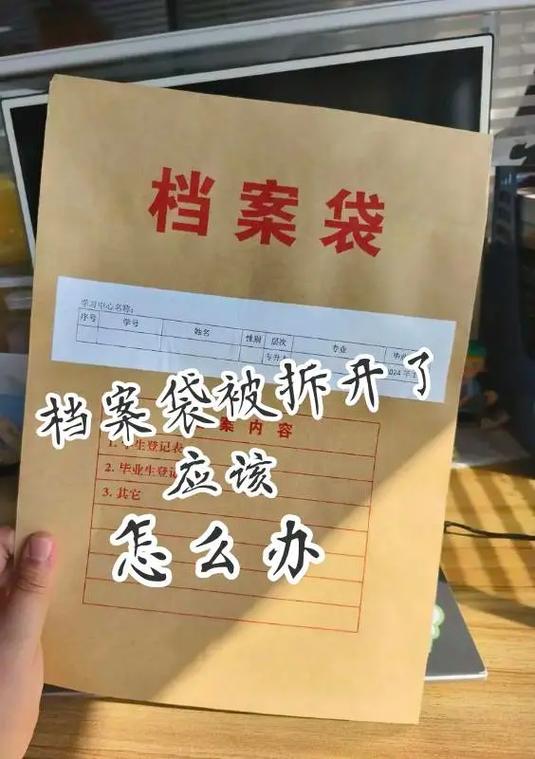 档案袋
学习中心名称:
序号 学号 姓名 性别 层次 专业
专升 2024 年
档案袋被拆开了
案内容
1. 学生登记表
2. 毕业生登记
应该
3. 其它
怎么办